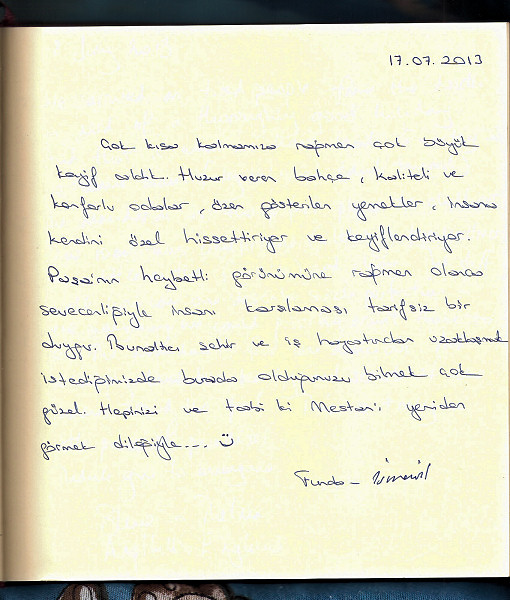 17.07.2013
Çok kısa kalmamıza rağmen çok büyük
keyif aldık. Huzur veren bahçe, kaliteli ve
konforlu odalar, özen gösterilen yemekler, insana
kendini özel hissettiriyor ve keyiflendiriyor.
Paşa'nın heybetli görünümüne rağmen olanca
sevecenliğiyle insanı karşılaması tarifsiz bir
duygu. Bunaltıcı şehir ve iş hayatından uzaklaşmak
istediğimizde burada olduğunuzu bilmek çok
güzel. Hepinizi ve tabi ki Mestan'ı yeniden
görmek dileğiyle... Ü
Funda - İsmail